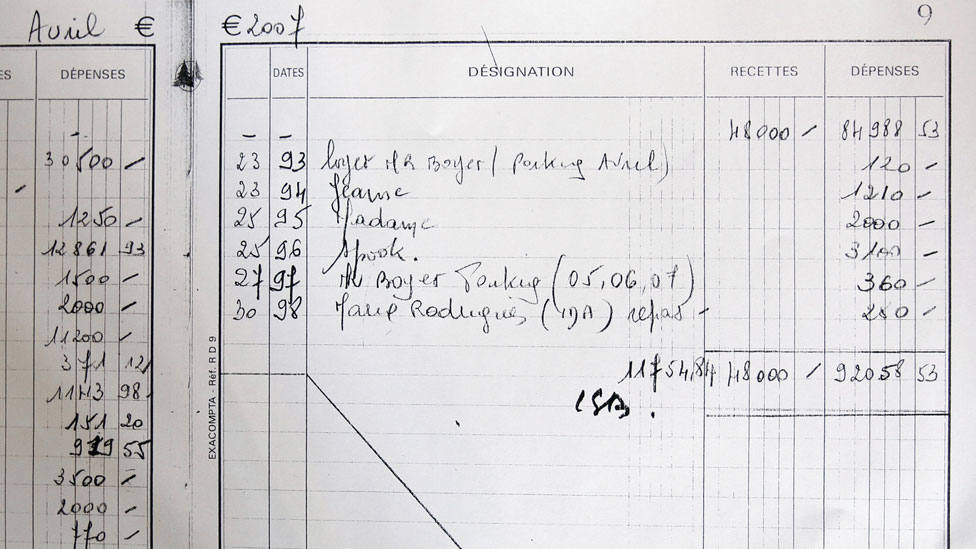 Avril €
ES DÉPENSES
-
30500 -
/
1250 -
12861 93
1500 -
2000 -
11200 -
371 12
1143 98
151 20
55
3500 -
2000 -
770 -
€ 2007
9
DATES DÉSIGNATION RECETTES DÉPENSES
- - 48000 / 84988 53
23 93 Loyer Mr Boyer (Parking Avril) 120 -
23 94 Jeanne 1210 -
25 95 Madame 2000 -
25 96 Spook. 3100 -
27 97 Mr Boyer Parking (05,06,07) 360 -
30 98 Marie Rodrigues (IDA) repas - 280 -
11754,84 48000 / 92058 53
EXACOMPTA - Réf. R D 9